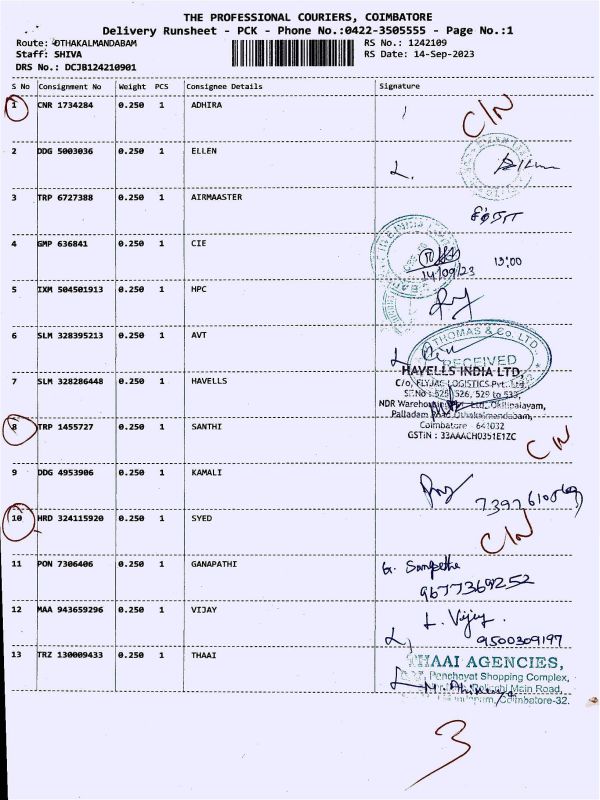 THE PROFESSIONAL COURIERS, COIMBATORE
Delivery Runsheet - PCK - Phone No.:0422-3505555 - Page No.:1
Route: OTHAKALMANDABAM RS No.: 1242109
Staff: SHIVA RS Date: 14-Sep-2023
DRS No.: DCJB124210901
S No Consignment No Weight PCS Consignee Details Signature
1 CNR 1734284 0.250 1 ADHIRA C/N
2 DDG 5003036 0.250 1 ELLEN
3 TRP 6727388 0.250 1 AIRMAASTER
4 GMP 636841 0.250 1 CIE 13:00
14/09/23
5 IXM 504501913 0.250 1 HPC
6 SLM 328395213 0.250 1 AVT
THOMAS & Co. LTD.
RECEIVED
HAVELLS INDIA LTD,
7 SLM 328286448 0.250 1 HAVELLS
C/o, FLYJAC LOGISTICS Pvt. Ltd,
SF.No : 525, 526, 529 to 533,
NDR Warehousing Pvt. Ltd, Okilipalayam,
Palladam Road, Othakalmandabam,
Coimbatore - 641032
GSTIN : 33AAACH0351E1ZC
8 TRP 1455727 0.250 1 SANTHI C/N
9 DDG 4953906 0.250 1 KAMALI
10 HRD 324115920 0.250 1 SYED C/N
11 PON 7306406 0.250 1 GANAPATHI G. Sampetha
9677369252
12 MAA 943659296 0.250 1 VIJAY L. Vijay
9500309197
13 TRZ 130009433 0.250 1 THAAI
THAAI AGENCIES,
Panchayat Shopping Complex,
Main Road,
Coimbatore-32.
3